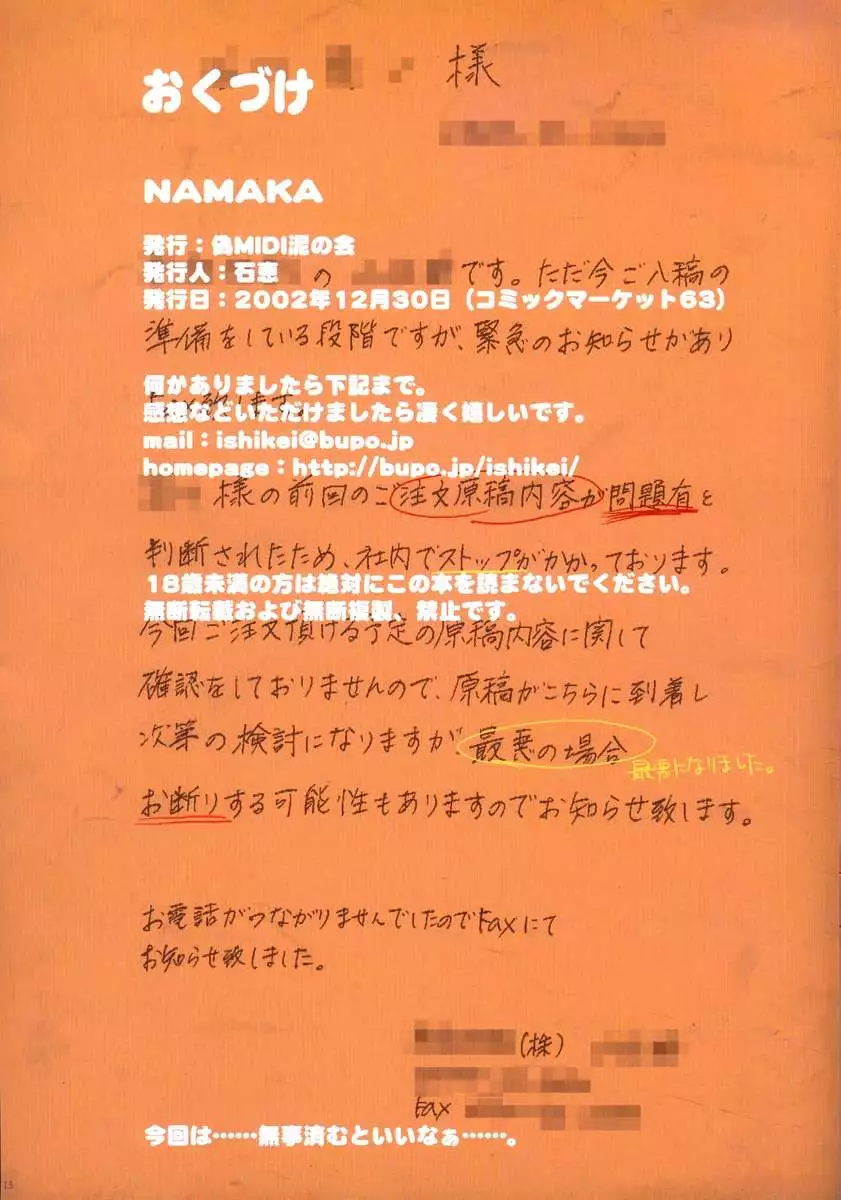 様
おくづけ
NAMAKA
発行：偽MIDI泥の会
発行人：石恵
の です。ただ今ご入稿の
発行日：2002年12月30日（コミックマーケット63）
準備をしている段階ですが、緊急のお知らせがあり
何かありましたら下記まで。
致します。
感想などいただけましたら凄く嬉しいです。
mail：ishikei@bupo.jp
homepage：http://bupo.jp/ishikei/
様の前回のご注文原稿内容が問題有と
判断されたため、社内でストップがかかっております。
18歳未満の方は絶対にこの本を読まないでください。
無断転載および無断複製、禁止です。
今回ご注文頂ける予定の原稿内容に関して
確認をしておりませんので、原稿がこちらに到着し
次第の検討になりますが、最悪の場合
最悪になりました。
お断りする可能性もありますのでお知らせ致します。
お電話がつながりませんでしたのでFaxにて
お知らせ致しました。
(株)
Fax
今回は……無事済むといいなぁ……。
13